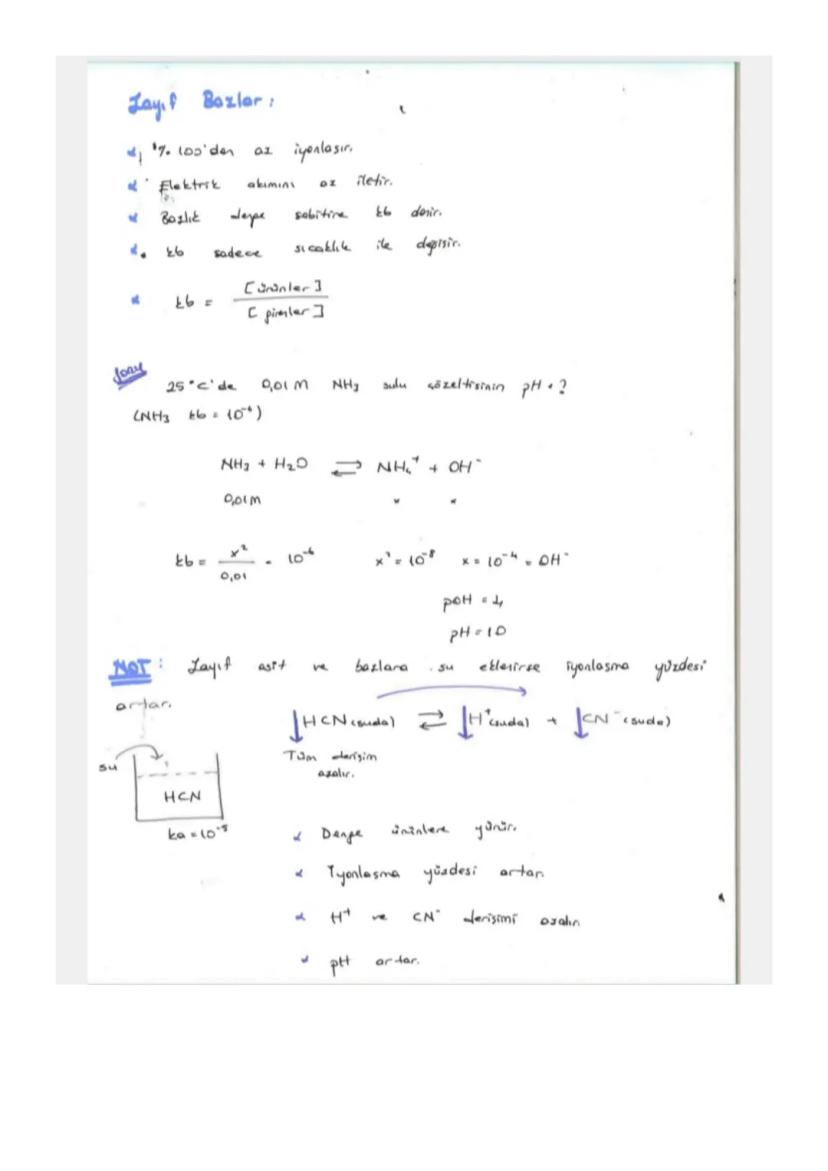 Zayıf Bazlar:
% 100'den az iyonlaşır.
Elektrik akımını az iletir.
Bazlık denge sabitine kb denir.
kb sadece sıcaklık ile değişir.
kb = [ürünler] / [girenler]
Soru 25°C'de 0,01 M NH3 sulu çözeltisinin pH = ?
(NH3 kb = 10⁻⁶)
NH3 + H2O ⇌ NH4⁺ + OH⁻
0,01M x x
kb = x² / 0,01 = 10⁻⁶ x² = 10⁻⁸ x = 10⁻⁴ = OH⁻
pOH = 4
pH = 10
NOT: Zayıf asit ve bazlara su eklenirse iyonlaşma yüzdesi
artar.
↓HCN(suda) ⇌ ↓H⁺(suda) + ↓CN⁻(suda)
Tüm derişim
azalır.
su
HCN
ka = 10⁻⁵
Denge ürünlere yürür.
İyonlaşma yüzdesi artar.
H⁺ ve CN⁻ derişimi azalır.
pH artar.